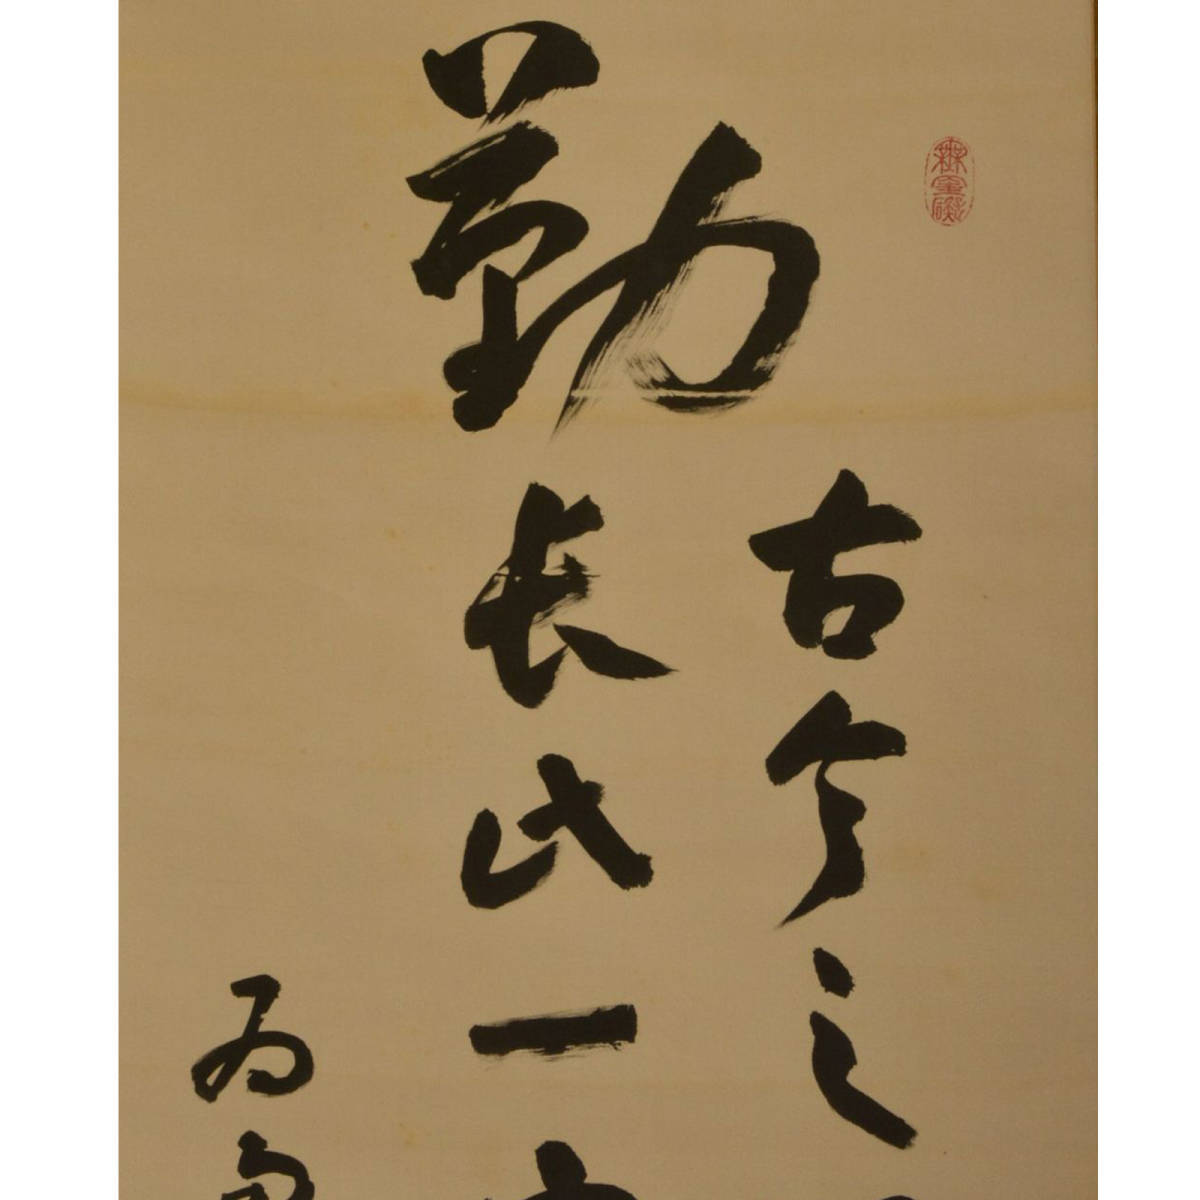 勤
古今之
長此一
為